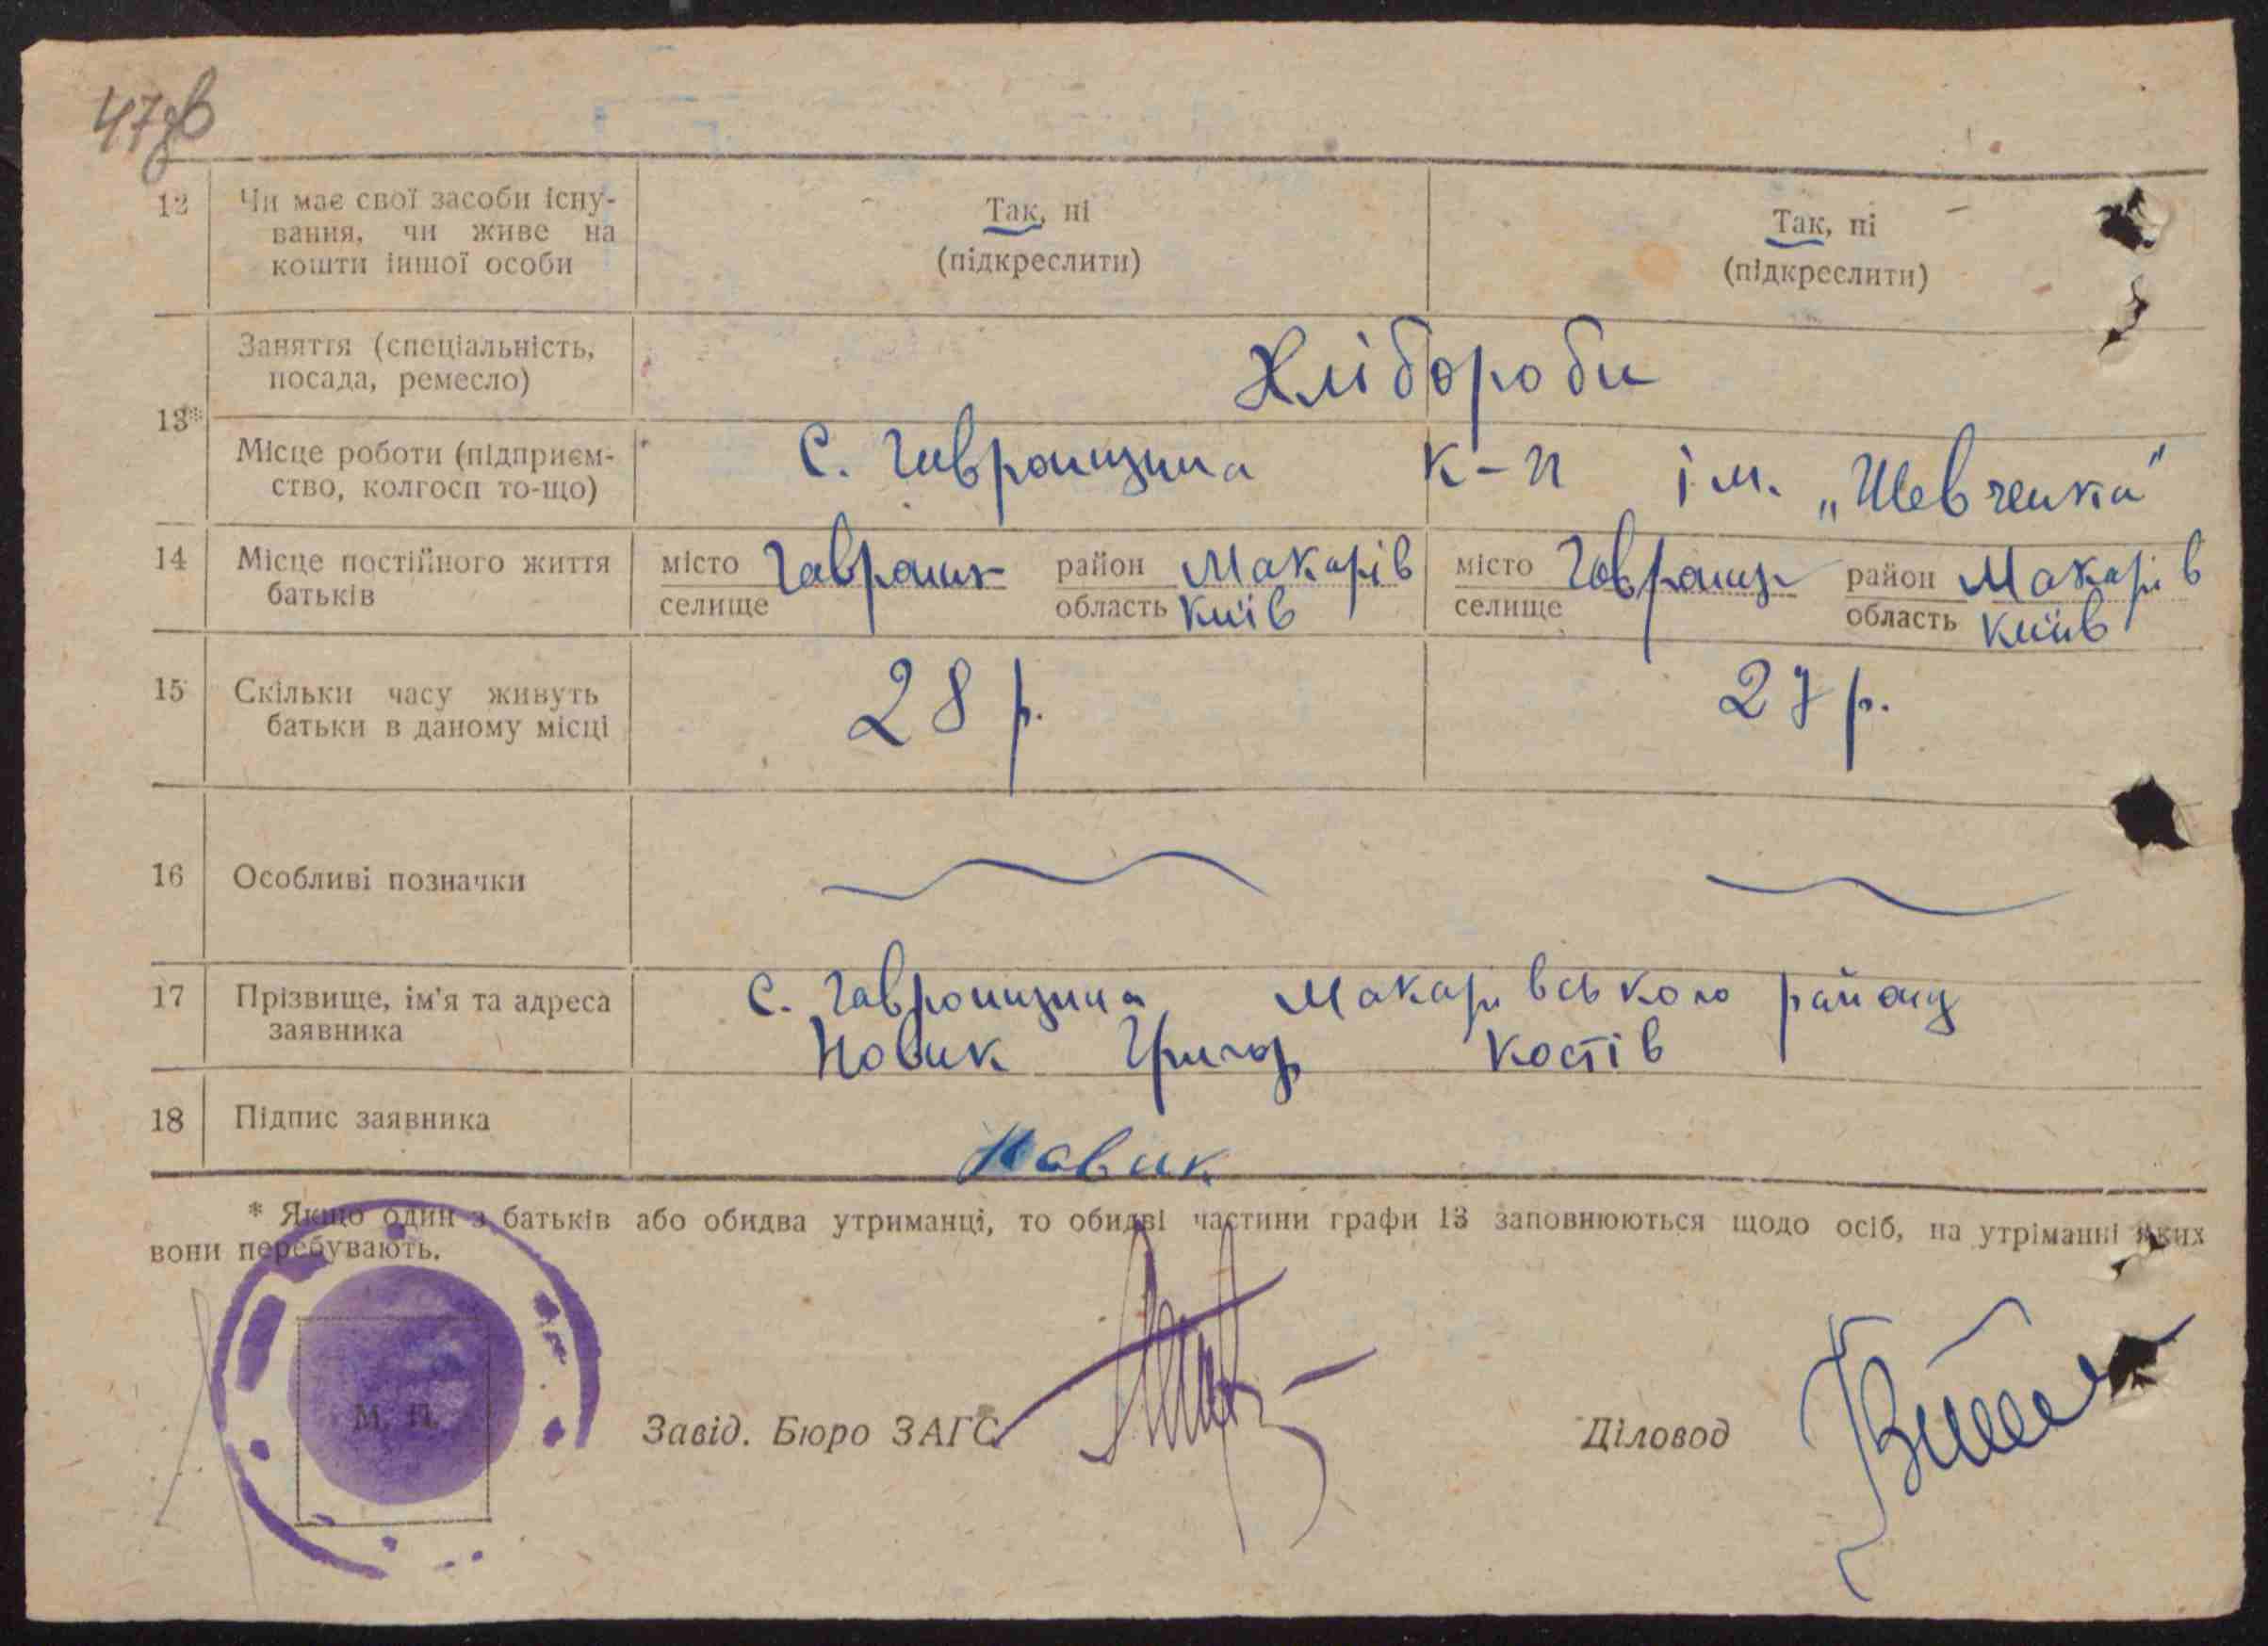 47зв
12 Чи має свої засоби існу- Так, ні Так, ні
вання, чи живе на (підкреслити) (підкреслити)
кошти іншої особи
Заняття (спеціальність, Хлібороби
посада, ремесло)
13*
Місце роботи (підприєм- С. Гавронщина к-п ім. „Шевченка"
ство, колгосп то-що)
14 Місце постійного життя місто Гавронщ район Макарів місто Гавронщ район Макарів
батьків селище область Київ селище область Київ
15 Скільки часу живуть 28 р. 27 р.
батьки в даному місці
16 Особливі позначки
17 Прізвище, ім'я та адреса с. Гавронщина Макарівського району
заявника Новик Григор Костів
18 Підпис заявника Новик
* Якщо один з батьків або обидва утриманці, то обидві частини графи 13 заповнюються щодо осіб, на утріманні яких
вони перебувають.
М. П.
Завід. Бюро ЗАГС Діловод